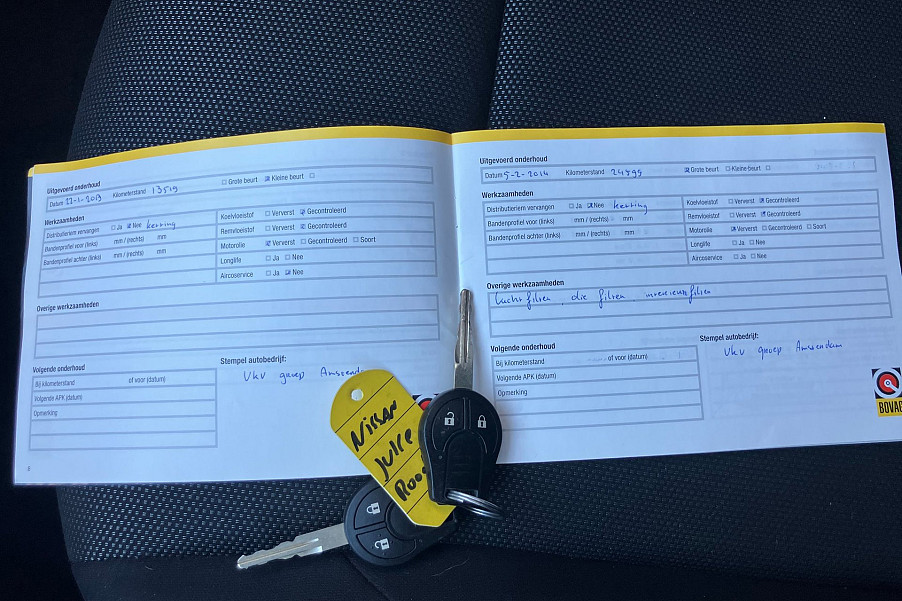 Uitgevoerd onderhoud
Datum 22-1-2013 Kilometerstand 13519 Grote beurt Kleine beurt
Werkzaamheden
Distributieriem vervangen Ja Nee ketting
Bandenprofiel voor (links) mm / (rechts) mm
Bandenprofiel achter (links) mm / (rechts) mm
Koelvloeistof Ververst Gecontroleerd
Remvloeistof Ververst Gecontroleerd
Motorolie Ververst Gecontroleerd Soort
Longlife Ja Nee
Aircoservice Ja Nee
Overige werkzaamheden
Volgende onderhoud
Bij kilometerstand of voor (datum)
Volgende APK (datum)
Opmerking
Stempel autobedrijf:
Vkv groep
8
Uitgevoerd onderhoud
Datum 5-2-2014 Kilometerstand 24799 Grote beurt Kleine beurt
Werkzaamheden
Distributieriem vervangen Ja Nee ketting
Bandenprofiel voor (links) mm / (rechts) mm
Bandenprofiel achter (links) mm / (rechts) mm
Koelvloeistof Ververst Gecontroleerd
Remvloeistof Ververst Gecontroleerd
Motorolie Ververst Gecontroleerd Soort
Longlife Ja Nee
Aircoservice Ja Nee
Overige werkzaamheden
Luchtfilter, olie filter, interieurfilter
Volgende onderhoud
Bij kilometerstand of voor (datum)
Volgende APK (datum)
Opmerking
Stempel autobedrijf:
Vkv groep Amsterdam
BOVAG
Nissan
Juke